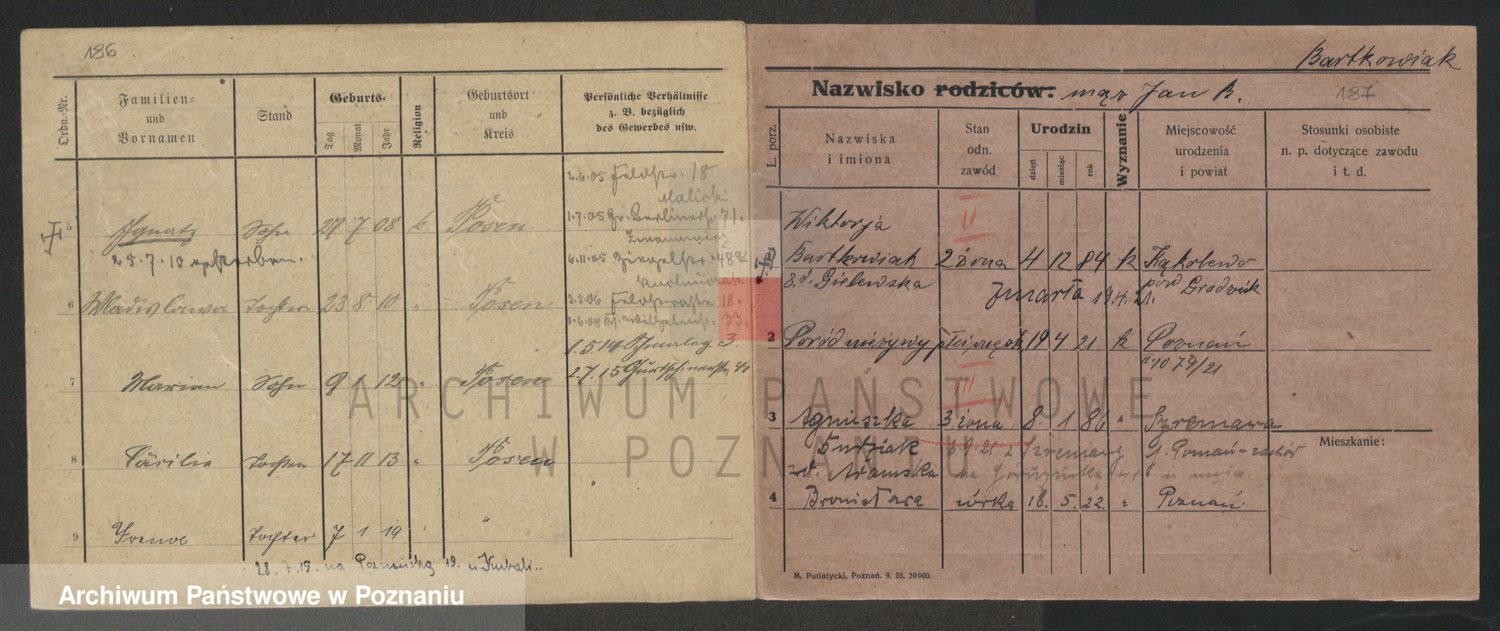 186
Ordn.-Nr.
Familien-
und
Vornamen
Stand
Geburts-
Tag
Monat
Jahr
Religion
Geburtsort
und
Kreis
Persönliche Verhältnisse
z. B. bezüglich
des Gewerbes usw.
2.6.05 Feldstr. 18
Malicki
5 Ignatz Sohn 29 7 08 k Posen
1.7.05 Gr. Berlinerstr. 71.
25.7.10 gestorben.
6.11.05
6 Wladislawa Tochter 23 8 10 " Posen
3.5.06 Feldstrasse 18.
33.
1.5.14 3.
7 Marian Sohn 9 1 12 " Posen
2.7.15
8 Cäcilie Tochter 17 11 13 " Posen
9 Irene Tochter 7 1 19 " "
28.7.19. na Poznańską 19. u Kubali..
Bartkowiak
Nazwisko rodziców: mąż Jan B.
187
L. porz.
Nazwiska
i imiona
Stan
odn.
zawód
Urodzin
dzień
miesiąc
rok
Wyznanie
Miejscowość
urodzenia
i powiat
Stosunki osobiste
n. p. dotyczące zawodu
i t. d.
II
Wiktorja
Bartkowiak 2 żona 4 12 84 k Kąkolewo
z d. Gielewska zmarła 19.4.21. pow. Grodzisk
2 Poród nieżywy płci męsk. 19 4 21 k Poznań
1079/21
III
3 Agnieszka 3 żona 8 1 86 " Szreniawa
z d. Adamska
4 Bronisława córka 18. 5. 22. " Poznań
Mieszkanie:
M. Putiatycki, Poznań. 9. 20. 20000.
ARCHIWUM PAŃSTWOWE
W POZNANIU
Archiwum Państwowe w Poznaniu